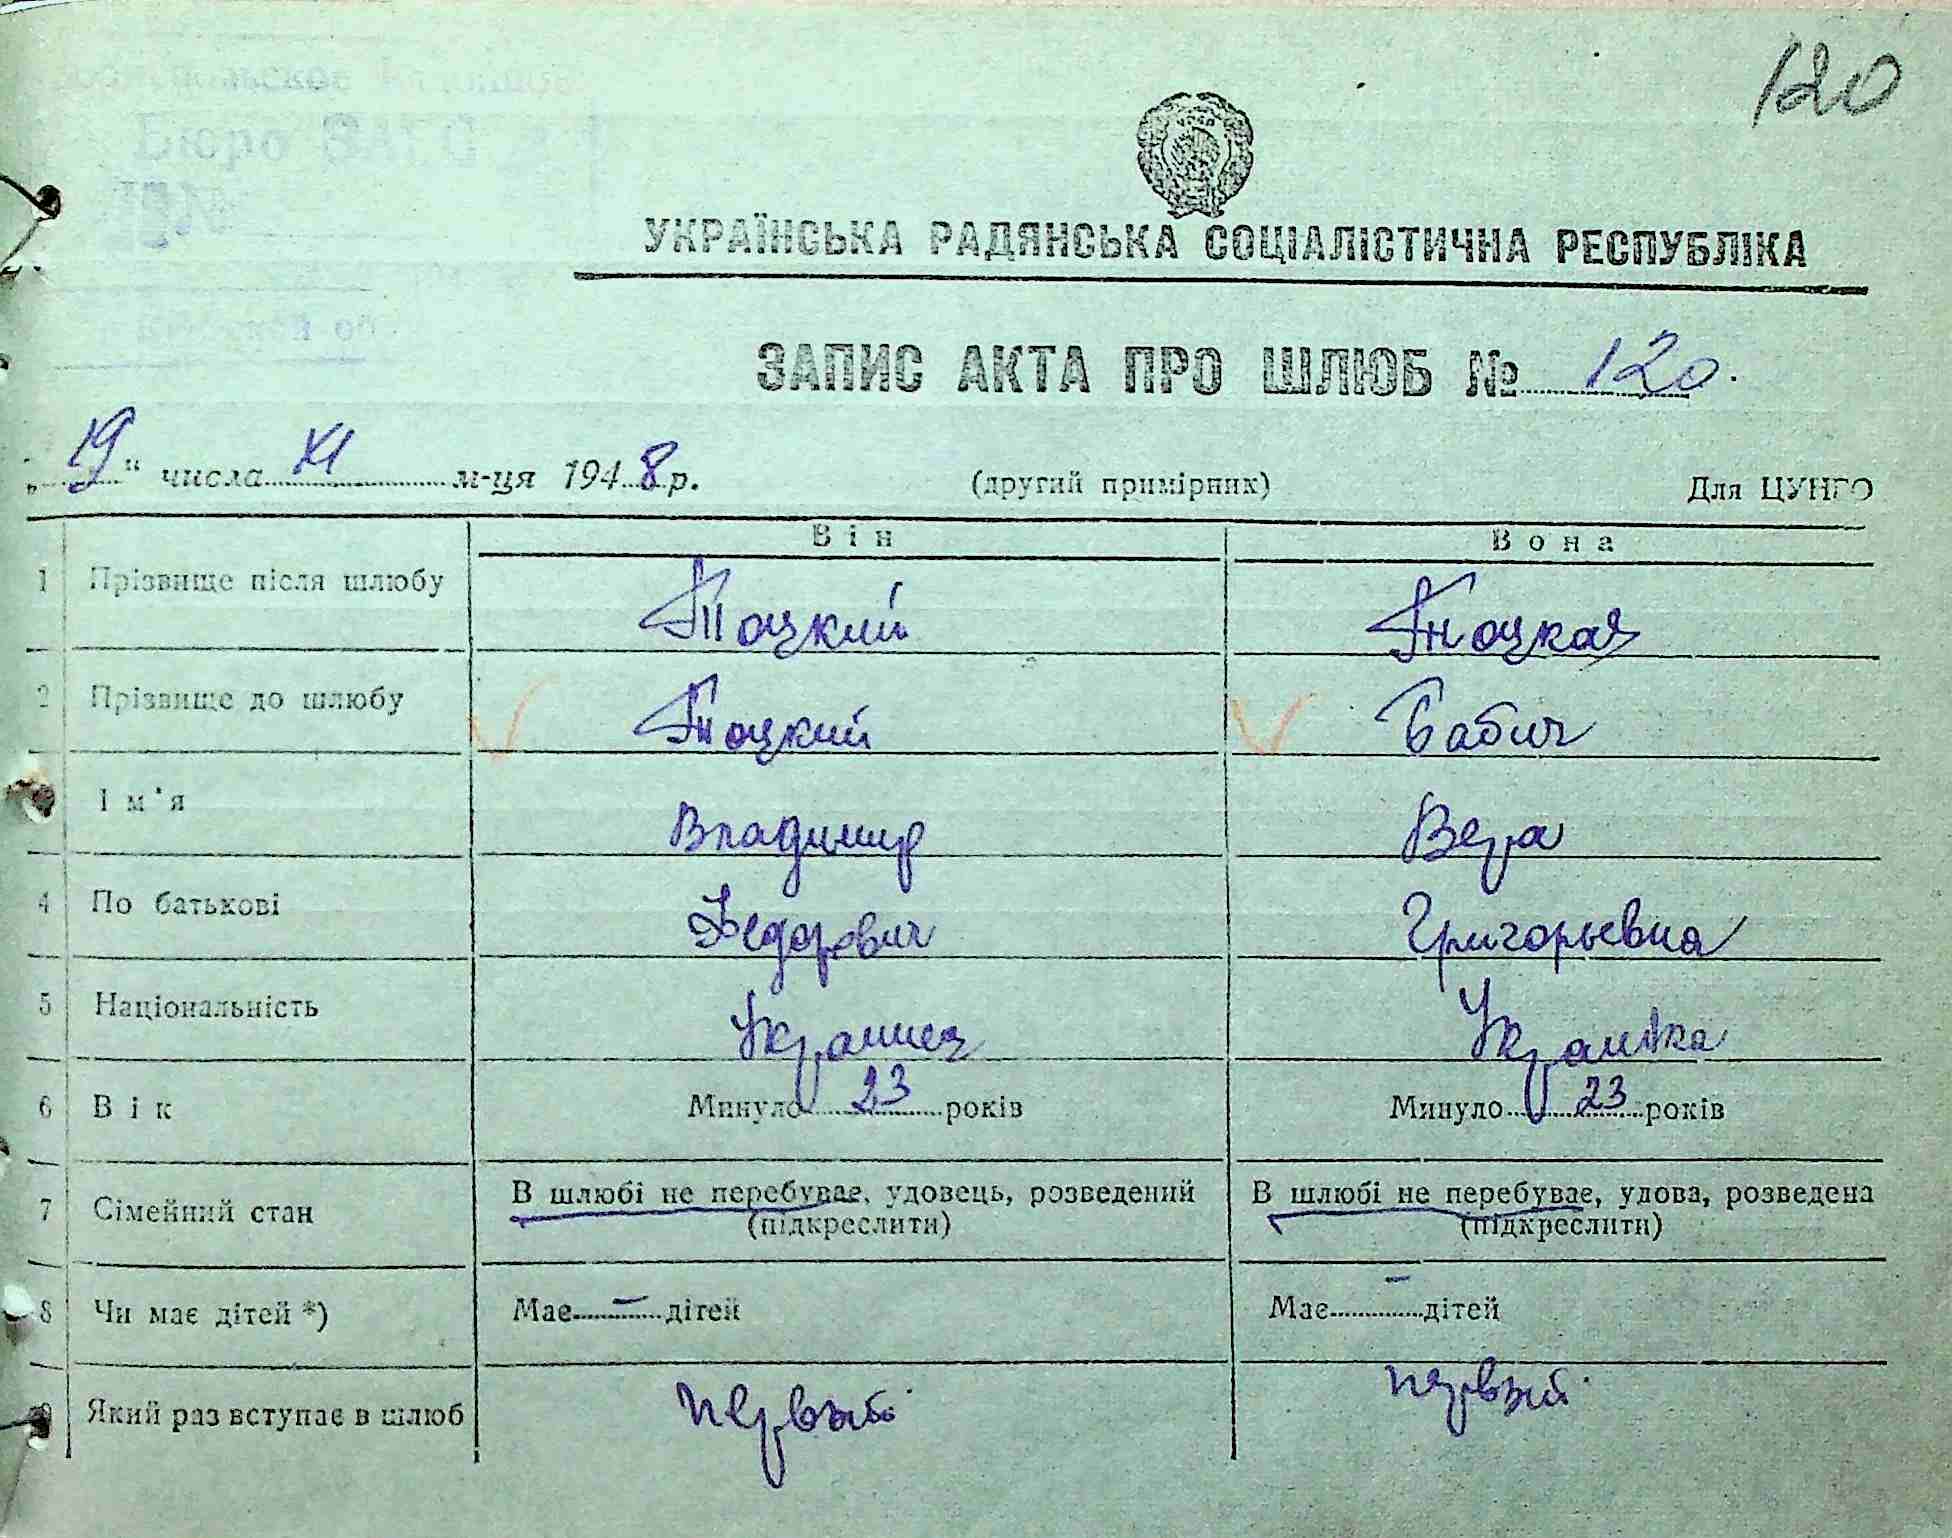 120
УКРАЇНСЬКА РАДЯНСЬКА СОЦІАЛІСТИЧНА РЕСПУБЛІКА
ЗАПИС АКТА ПРО ШЛЮБ № 120.
„19" числа XI м-ця 1948 р. (другий примірник) Для ЦУНГО
Він Вона
1 Прізвище після шлюбу Тоцкий Тоцкая
2 Прізвище до шлюбу Тоцкий Бабич
Ім'я Владимир Вера
4 По батькові Федорович Григорьевна
5 Національність Украинец Украинка
6 Вік Минуло 23 років Минуло 23 років
7 Сімейний стан В шлюбі не перебуває, удовець, розведений (підкреслити) В шлюбі не перебуває, удова, розведена (підкреслити)
8 Чи має дітей *) Має – дітей Має – дітей
9 Який раз вступає в шлюб первый первый